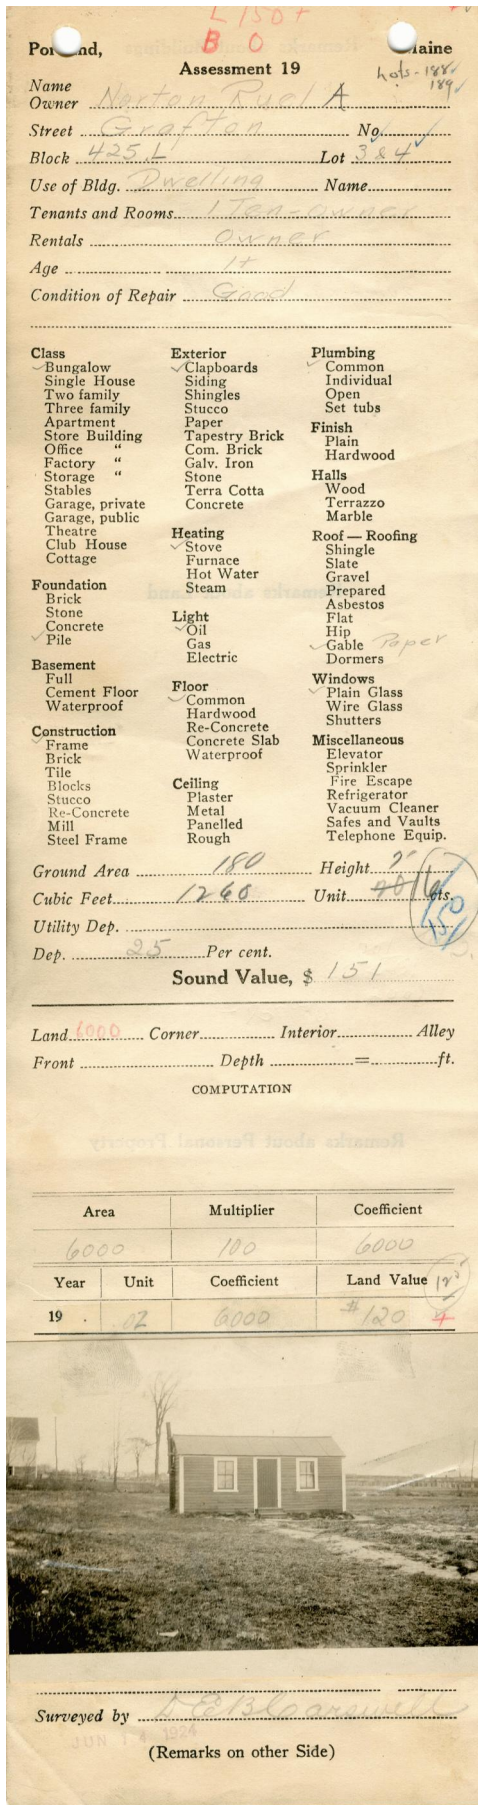 L 150 +
B 0
Portland, Maine
Assessment 19
Lots - 188
189
Name
Owner Norton Ruel A
Street Grafton No.
Block 425 L Lot 3 & 4
Use of Bldg. Dwelling Name
Tenants and Rooms 1 Ten-owner
Rentals owner
Age 1+
Condition of Repair Good
Class
Bungalow
Single House
Two family
Three family
Apartment
Store Building
Office "
Factory "
Storage "
Stables
Garage, private
Garage, public
Theatre
Club House
Cottage
Foundation
Brick
Stone
Concrete
Pile
Basement
Full
Cement Floor
Waterproof
Construction
Frame
Brick
Tile
Blocks
Stucco
Re-Concrete
Mill
Steel Frame
Exterior
Clapboards
Siding
Shingles
Stucco
Paper
Tapestry Brick
Com. Brick
Galv. Iron
Stone
Terra Cotta
Concrete
Heating
Stove
Furnace
Hot Water
Steam
Light
Oil
Gas
Electric
Floor
Common
Hardwood
Re-Concrete
Concrete Slab
Waterproof
Ceiling
Plaster
Metal
Panelled
Rough
Plumbing
Common
Individual
Open
Set tubs
Finish
Plain
Hardwood
Halls
Wood
Terrazzo
Marble
Roof — Roofing
Shingle
Slate
Gravel
Prepared
Asbestos
Flat
Hip
Gable Paper
Dormers
Windows
Plain Glass
Wire Glass
Shutters
Miscellaneous
Elevator
Sprinkler
Fire Escape
Refrigerator
Vacuum Cleaner
Safes and Vaults
Telephone Equip.
Ground Area 180 Height 7'
Cubic Feet 1260 Unit 16 cts.
150
Utility Dep.
Dep. 25 Per cent.
Sound Value, $ 151
Land 6000 Corner Interior Alley
Front Depth = ft.
COMPUTATION
Area Multiplier Coefficient
6000 100 6000
Year Unit Coefficient Land Value
19 . 02 6000 $120
Surveyed by D E B Carswell
JUN 14 1924
(Remarks on other Side)